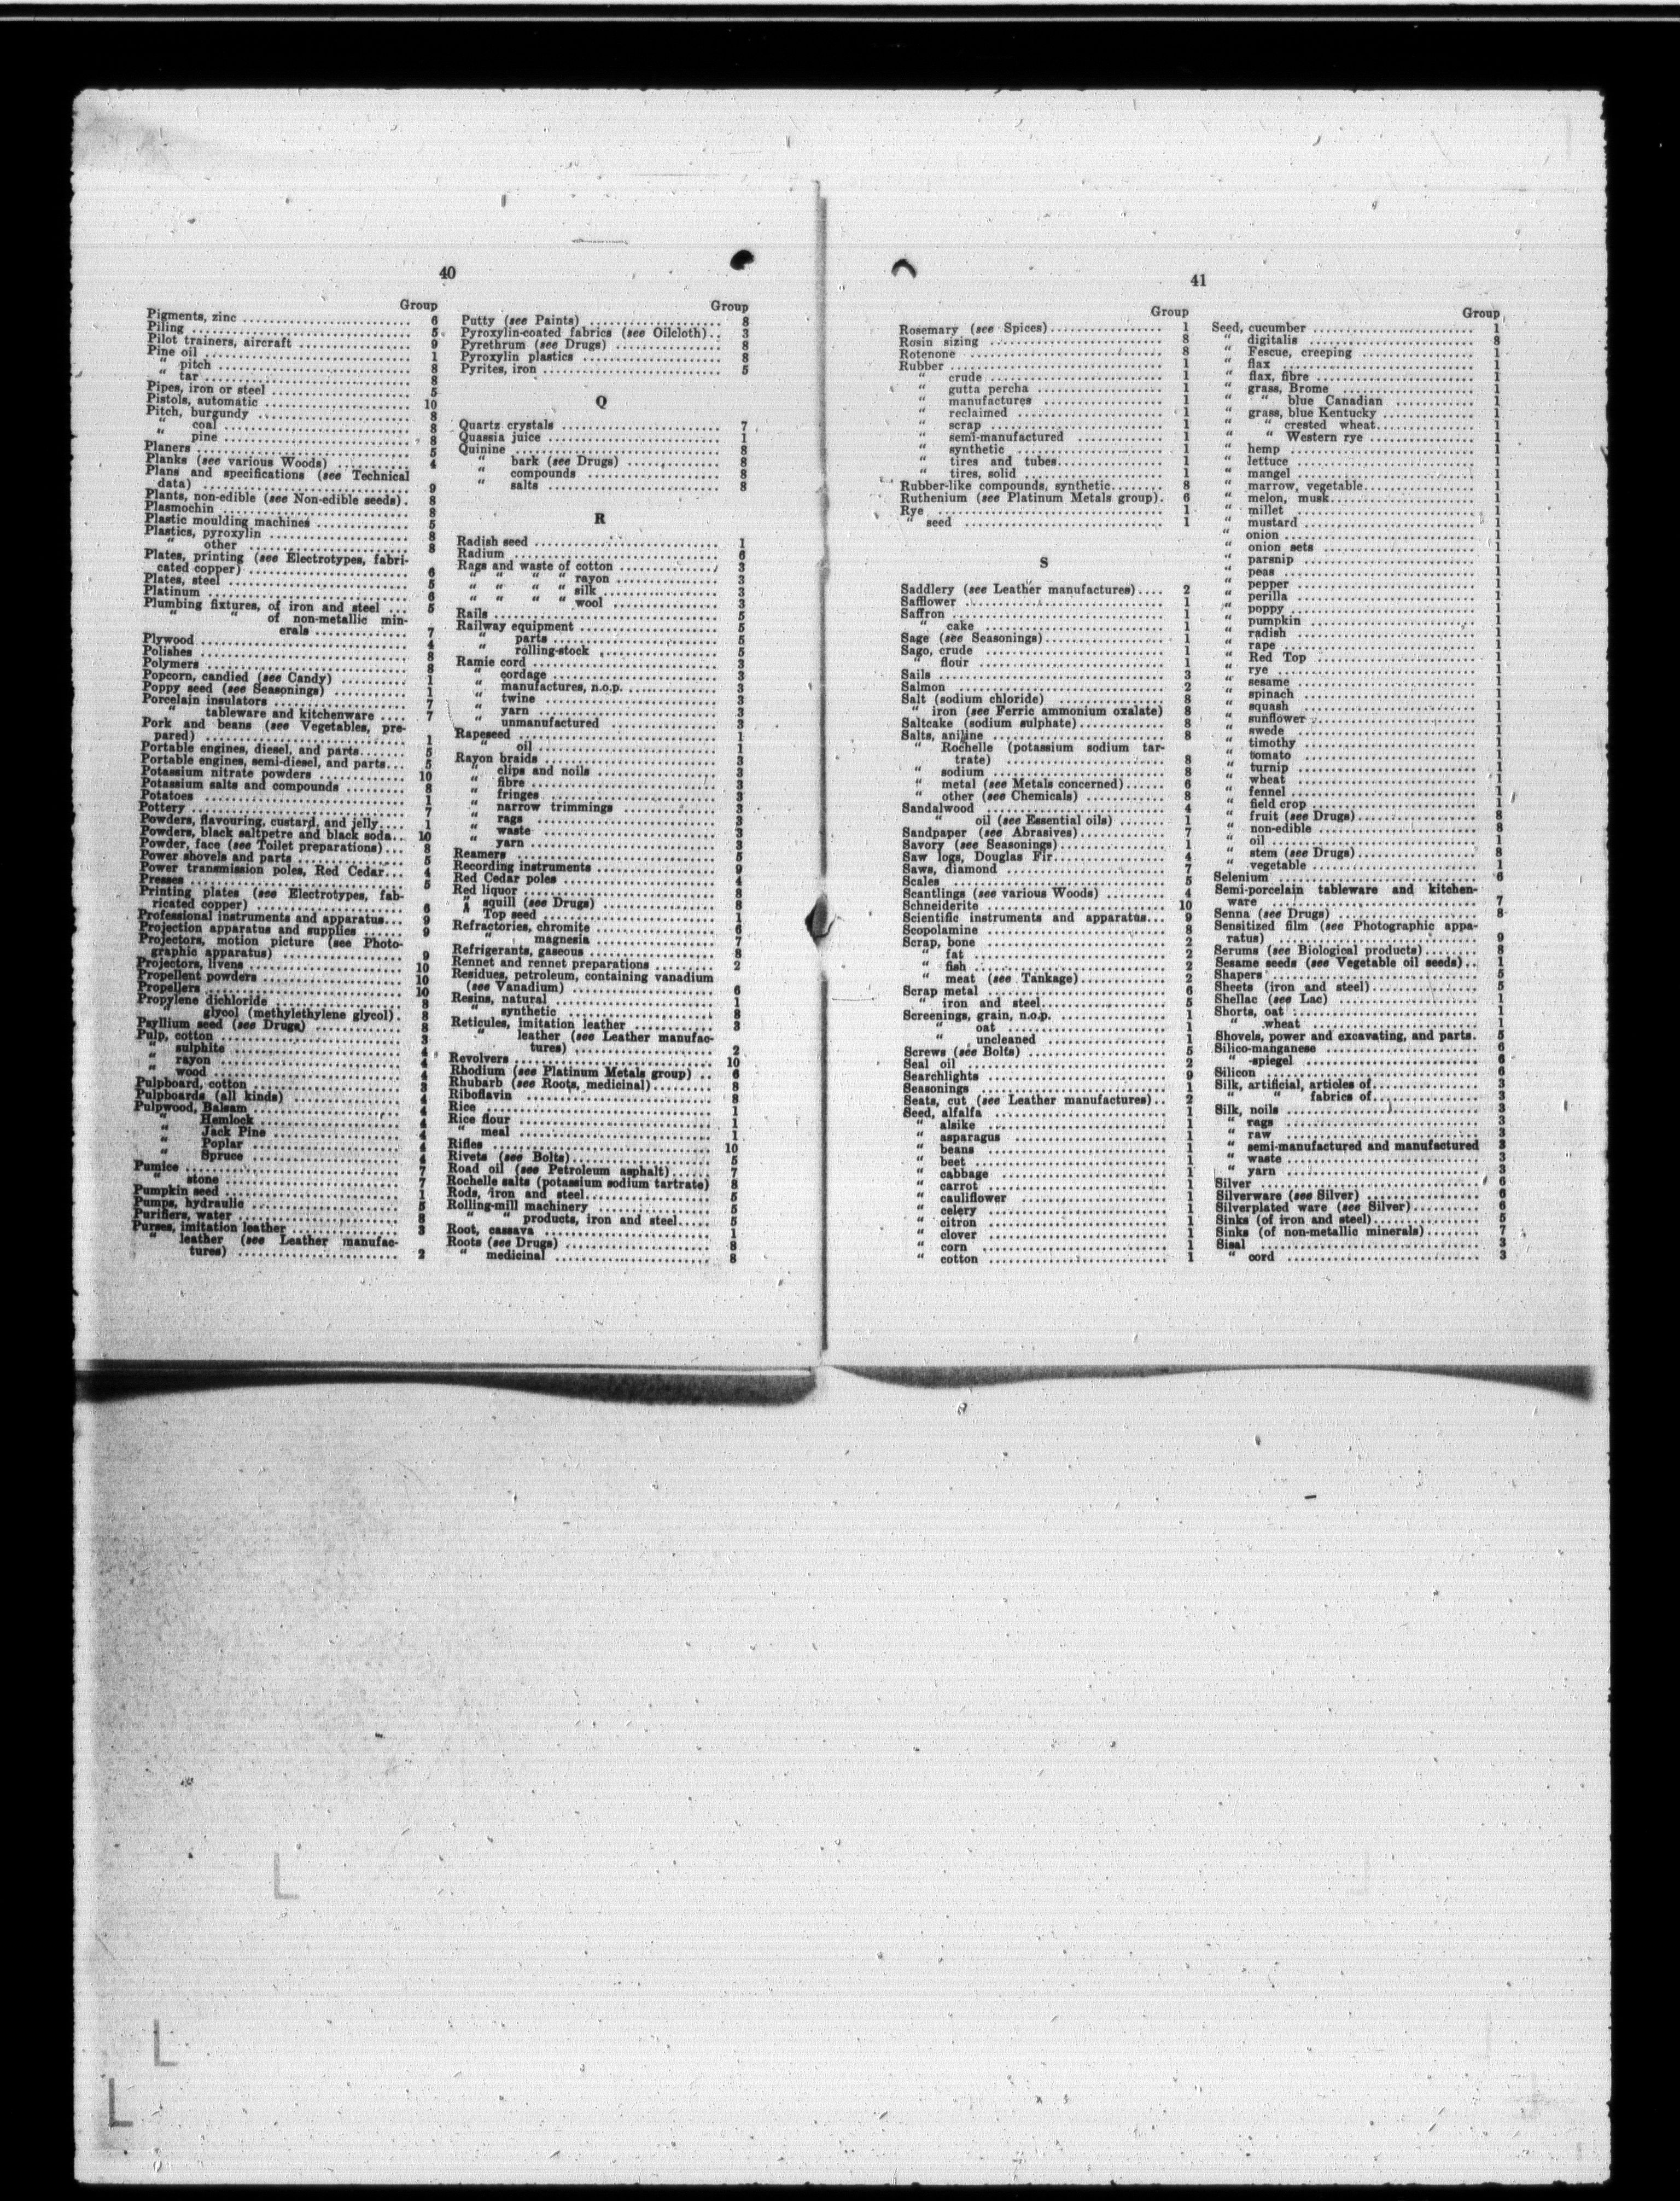 40
Group
Pigments, zinc .... 6
Piling .... 5
Pilot trainers, aircraft .... 9
Pine oil .... 1
“ pitch .... 8
“ tar .... 8
Pipes, iron or steel .... 5
Pistols, automatic .... 10
Pitch, burgundy .... 8
“ coal .... 8
“ pine .... 8
Planers .... 5
Planks (see various Woods) .... 4
Plans and specifications (see Technical
data) .... 9
Plants, non-edible (see Non-edible seeds). 8
Plasmochin .... 8
Plastic moulding machines .... 5
Plastics, pyroxylin .... 8
“ other .... 8
Plates, printing (see Electrotypes, fabri-
cated copper) .... 6
Plates, steel .... 5
Platinum .... 6
Plumbing fixtures, of iron and steel ... 5
“ “ of non-metallic min-
erals .... 7
Plywood .... 4
Polishes .... 8
Polymers .... 8
Popcorn, candied (see Candy) .... 1
Poppy seed (see Seasonings) .... 1
Porcelain insulators .... 7
“ tableware and kitchenware .... 7
Pork and beans (see Vegetables, pre-
pared) .... 1
Portable engines, diesel, and parts.... 5
Portable engines, semi-diesel, and parts... 5
Potassium nitrate powders .... 10
Potassium salts and compounds .... 8
Potatoes .... 1
Pottery .... 7
Powders, flavouring, custard, and jelly.... 1
Powders, black saltpetre and black soda... 10
Powder, face (see Toilet preparations)... 8
Power shovels and parts .... 5
Power transmission poles, Red Cedar... 4
Presses .... 5
Printing plates (see Electrotypes, fab-
ricated copper) .... 6
Professional instruments and apparatus... 9
Projection apparatus and supplies .... 9
Projectors, motion picture (see Photo-
graphic apparatus) .... 9
Projectors, livens .... 10
Propellent powders .... 10
Propellers .... 10
Propylene dichloride .... 8
“ glycol (methylethylene glycol). 8
Psyllium seed (see Drugs) .... 8
Pulp, cotton .... 3
“ sulphite .... 4
“ rayon .... 4
“ wood .... 4
Pulpboard, cotton .... 3
Pulpboards (all kinds) .... 4
Pulpwood, Balsam .... 4
“ Hemlock .... 4
“ Jack Pine .... 4
“ Poplar .... 4
“ Spruce .... 4
Pumice .... 7
“ stone .... 7
Pumpkin seed .... 1
Pumps, hydraulic .... 5
Purifiers, water .... 8
Purses, imitation leather .... 3
“ leather (see Leather manufac-
tures) .... 2
Group
Putty (see Paints) .... 8
Pyroxylin-coated fabrics (see Oilcloth).. 3
Pyrethrum (see Drugs) .... 8
Pyroxylin plastics .... 8
Pyrites, iron .... 5
Q
Quartz crystals .... 7
Quassia juice .... 1
Quinine .... 8
“ bark (see Drugs) .... 8
“ compounds .... 8
“ salts .... 8
R
Radish seed .... 1
Radium .... 6
Rags and waste of cotton .... 3
“ “ “ “ rayon .... 3
“ “ “ “ silk .... 3
“ “ “ “ wool .... 3
Rails .... 5
Railway equipment .... 5
“ parts .... 5
“ rolling-stock .... 5
Ramie cord .... 3
“ cordage .... 3
“ manufactures, n.o.p. .... 3
“ twine .... 3
“ yarn .... 3
“ unmanufactured .... 3
Rapeseed .... 1
“ oil .... 1
Rayon braids .... 3
“ clips and noils .... 3
“ fibre .... 3
“ fringes .... 3
“ narrow trimmings .... 3
“ rags .... 3
“ waste .... 3
“ yarn .... 3
Reamers .... 5
Recording instruments .... 9
Red Cedar poles .... 4
Red liquor .... 8
“ squill (see Drugs) .... 8
“ Top seed .... 1
Refractories, chromite .... 6
“ magnesia .... 7
Refrigerants, gaseous .... 8
Rennet and rennet preparations .... 2
Residues, petroleum, containing vanadium
(see Vanadium) .... 6
Resins, natural .... 1
“ synthetic .... 8
Reticules, imitation leather .... 3
“ leather (see Leather manufac-
tures) .... 2
Revolvers .... 10
Rhodium (see Platinum Metals group) .. 6
Rhubarb (see Roots, medicinal).... 8
Riboflavin .... 8
Rice .... 1
Rice flour .... 1
“ meal .... 1
Rifles .... 10
Rivets (see Bolts).... 5
Road oil (see Petroleum asphalt).... 7
Rochelle salts (potassium sodium tartrate) 8
Rods, iron and steel.... 5
Rolling-mill machinery .... 5
“ “ products, iron and steel.... 5
Root, cassava .... 1
Roots (see Drugs) .... 8
“ medicinal .... 8
41
Group
Rosemary (see Spices).... 1
Rosin sizing .... 8
Rotenone .... 8
Rubber .... 1
“ crude .... 1
“ gutta percha .... 1
“ manufactures .... 1
“ reclaimed .... 1
“ scrap .... 1
“ semi-manufactured .... 1
“ synthetic .... 1
“ tires and tubes.... 1
“ tires, solid .... 1
Rubber-like compounds, synthetic.... 8
Ruthenium (see Platinum Metals group). 6
Rye .... 1
“ seed .... 1
S
Saddlery (see Leather manufactures).... 2
Safflower .... 1
Saffron .... 1
“ cake .... 1
Sage (see Seasonings).... 1
Sago, crude .... 1
“ flour .... 1
Sails .... 3
Salmon .... 2
Salt (sodium chloride) .... 8
“ iron (see Ferric ammonium oxalate) 8
Saltcake (sodium sulphate).... 8
Salts, aniline .... 8
“ Rochelle (potassium sodium tar-
trate) .... 8
“ sodium .... 8
“ metal (see Metals concerned).... 6
“ other (see Chemicals) .... 8
Sandalwood .... 4
“ oil (see Essential oils) .... 1
Sandpaper (see Abrasives).... 7
Savory (see Seasonings).... 1
Saw logs, Douglas Fir.... 4
Saws, diamond .... 7
Scales .... 5
Scantlings (see various Woods) .... 4
Schneiderite .... 10
Scientific instruments and apparatus... 9
Scopolamine .... 8
Scrap, bone .... 2
“ fat .... 2
“ fish .... 2
“ meat (see Tankage).... 2
Scrap metal .... 6
“ iron and steel.... 5
Screenings, grain, n.o.p. .... 1
“ oat .... 1
“ uncleaned .... 1
Screws (see Bolts) .... 5
Seal oil .... 2
Searchlights .... 9
Seasonings .... 1
Seats, cut (see Leather manufactures).. 2
Seed, alfalfa .... 1
“ alsike .... 1
“ asparagus .... 1
“ beans .... 1
“ beet .... 1
“ cabbage .... 1
“ carrot .... 1
“ cauliflower .... 1
“ celery .... 1
“ citron .... 1
“ clover .... 1
“ corn .... 1
“ cotton .... 1
Group
Seed, cucumber .... 1
“ digitalis .... 8
“ Fescue, creeping .... 1
“ flax .... 1
“ flax, fibre .... 1
“ grass, Brome .... 1
“ “ blue Canadian .... 1
“ grass, blue Kentucky .... 1
“ “ crested wheat.... 1
“ “ Western rye .... 1
“ hemp .... 1
“ lettuce .... 1
“ mangel .... 1
“ marrow, vegetable.... 1
“ melon, musk.... 1
“ millet .... 1
“ mustard .... 1
“ onion .... 1
“ onion sets .... 1
“ parsnip .... 1
“ peas .... 1
“ pepper .... 1
“ perilla .... 1
“ poppy .... 1
“ pumpkin .... 1
“ radish .... 1
“ rape .... 1
“ Red Top .... 1
“ rye .... 1
“ sesame .... 1
“ spinach .... 1
“ squash .... 1
“ sunflower .... 1
“ swede .... 1
“ timothy .... 1
“ tomato .... 1
“ turnip .... 1
“ wheat .... 1
“ fennel .... 1
“ field crop .... 1
“ fruit (see Drugs).... 8
“ non-edible .... 8
“ oil .... 1
“ stem (see Drugs).... 8
“ vegetable .... 1
Selenium .... 6
Semi-porcelain tableware and kitchen-
ware .... 7
Senna (see Drugs) .... 8
Sensitized film (see Photographic appa-
ratus) .... 9
Serums (see Biological products).... 8
Sesame seeds (see Vegetable oil seeds).. 1
Shapers .... 5
Sheets (iron and steel).... 5
Shellac (see Lac) .... 1
Shorts, oat .... 1
“ wheat .... 1
Shovels, power and excavating, and parts. 5
Silico-manganese .... 6
“ -spiegel .... 6
Silicon .... 6
Silk, artificial, articles of.... 3
“ “ fabrics of.... 3
Silk, noils .... 3
“ rags .... 3
“ raw .... 3
“ semi-manufactured and manufactured 3
“ waste .... 3
“ yarn .... 3
Silver .... 6
Silverware (see Silver) .... 6
Silverplated ware (see Silver).... 6
Sinks (of iron and steel).... 5
Sinks (of non-metallic minerals).... 7
Sisal .... 3
“ cord .... 3